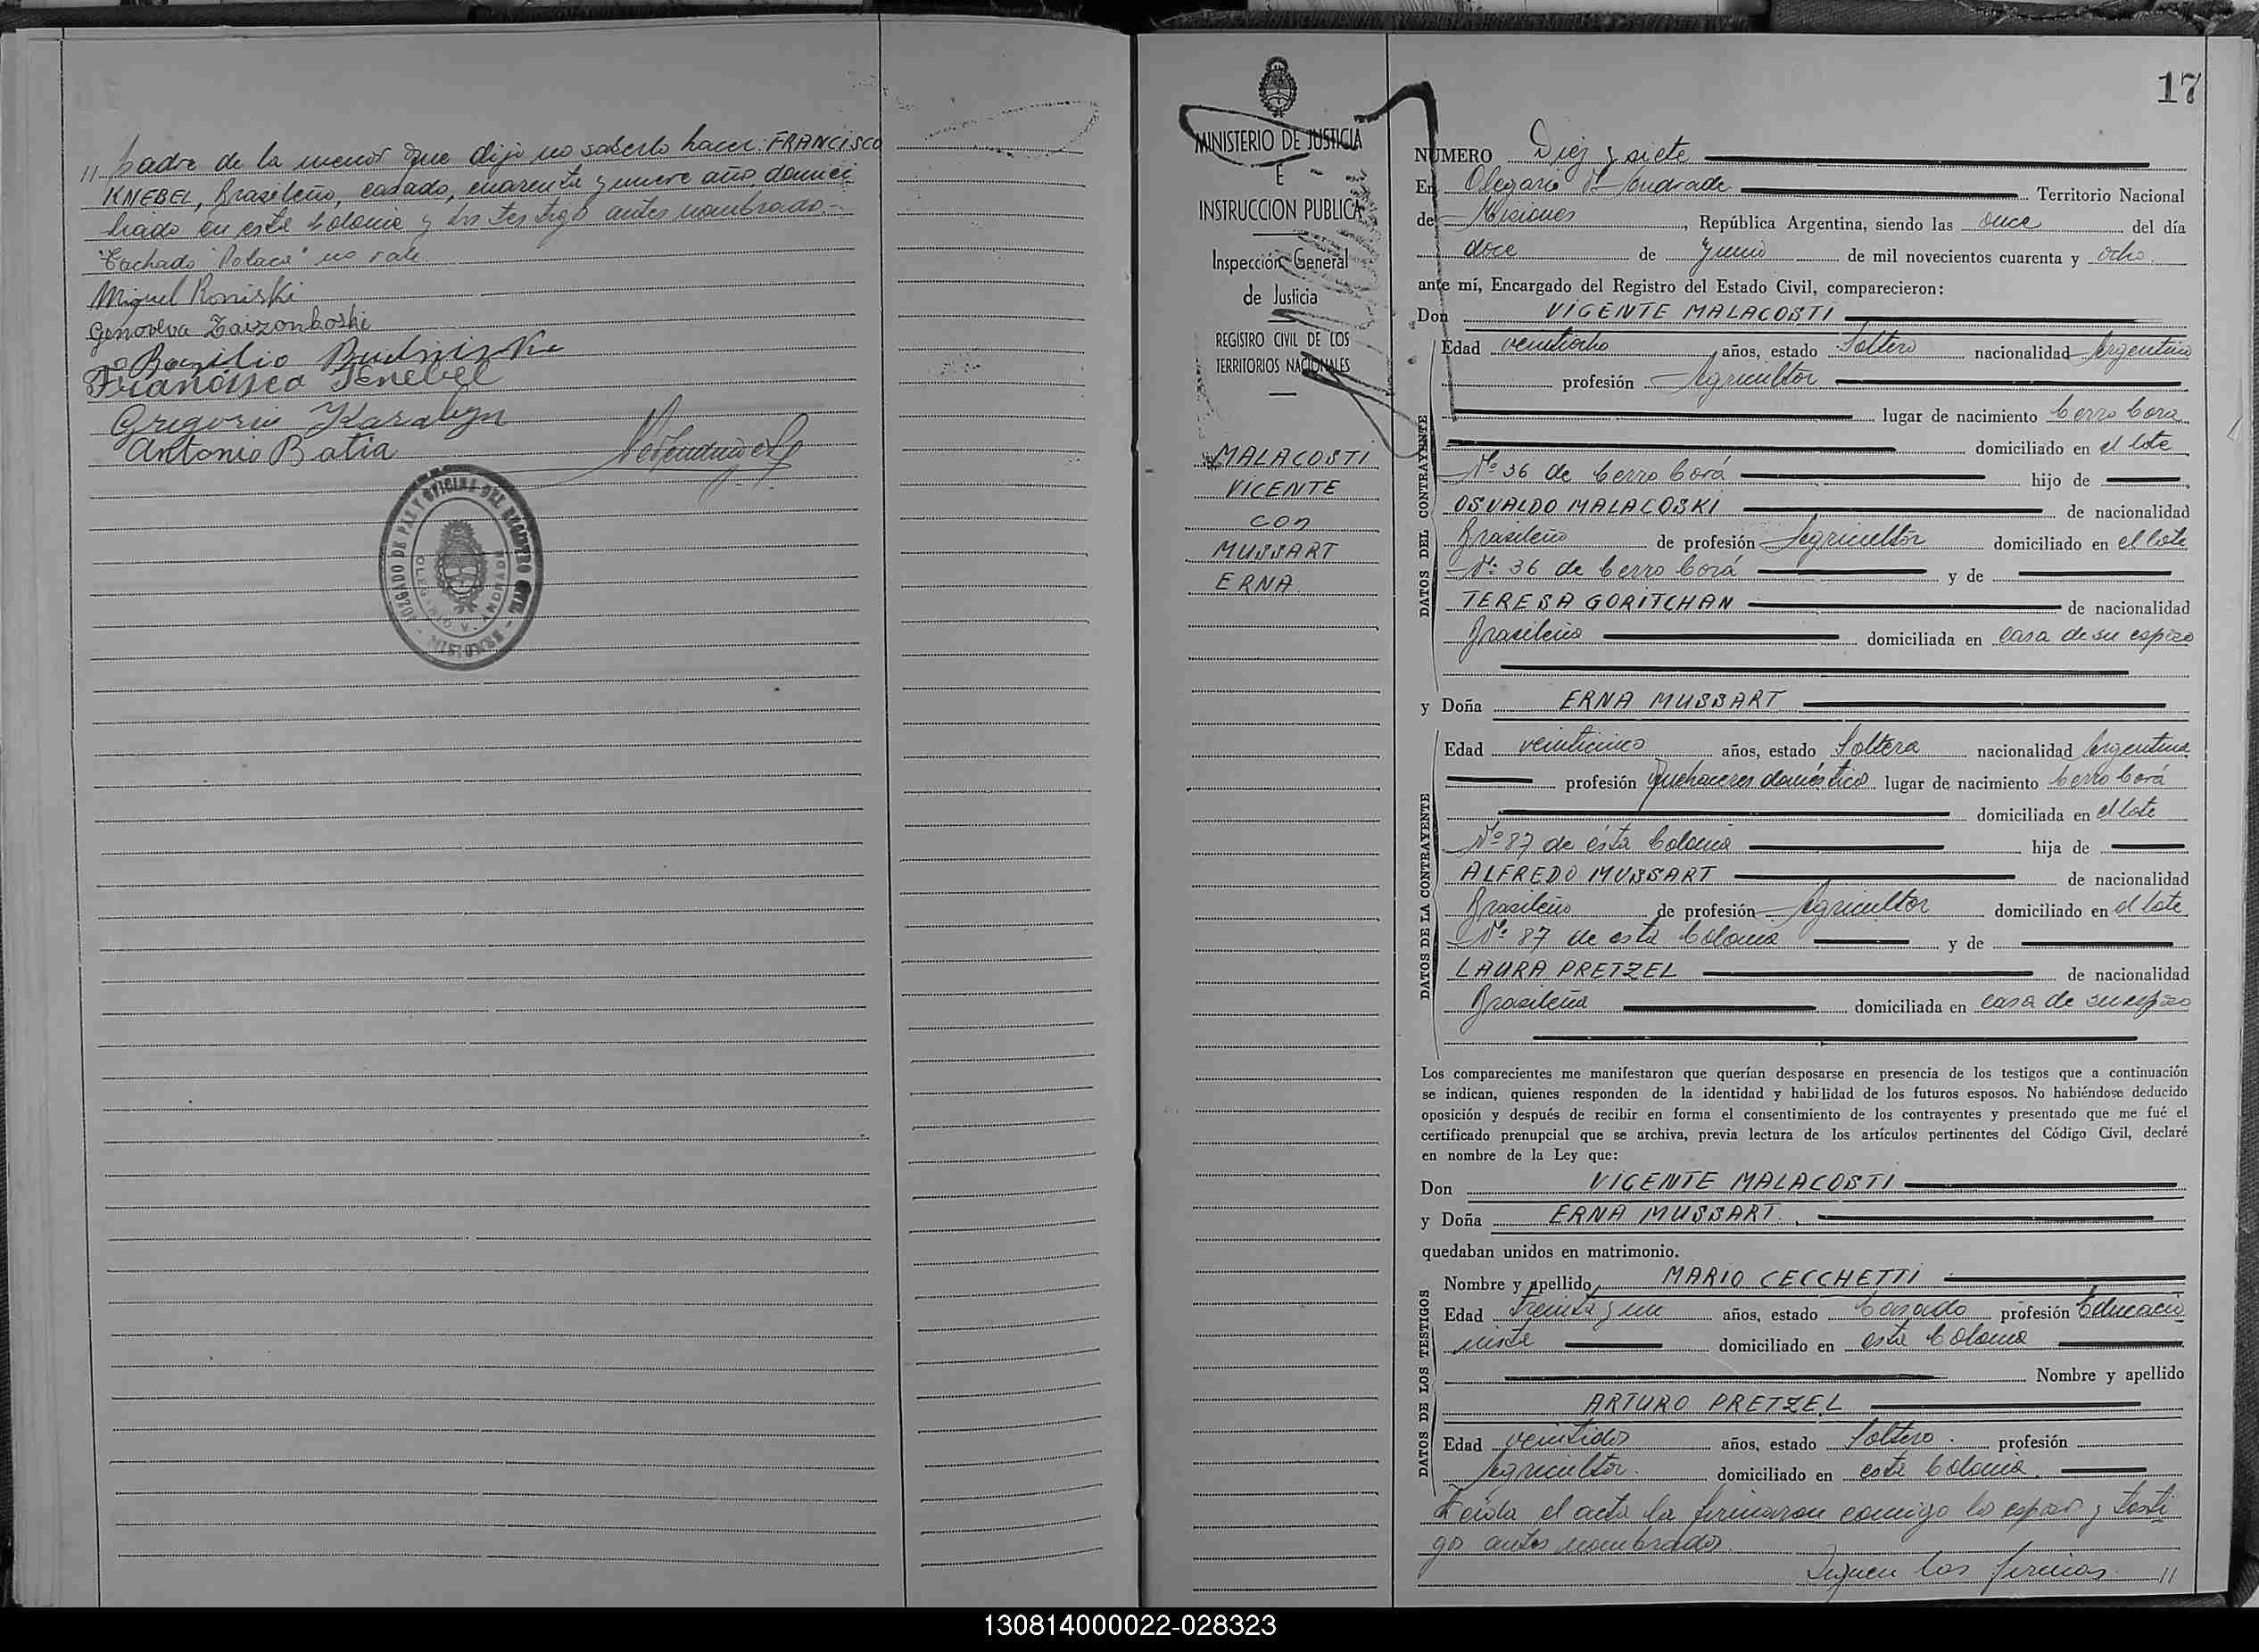 // padre de la menor que dijo no saberlo hacer: FRANCISCO
KNEBEL, Brasileño, casado, cuarenta y nueve año, domici
liado en esta Colonia y los testigo antes nombrado.-
"Tachado "Polaca" no vale.
Miguel Roniski
Genoveva Zaizonkoski
Bazilio
Francisco Knebel
Gregorio
Antonio Batia
JUZGADO DE PAZ Y OFICINA DEL REGISTRO CIVIL
OLEGARIO V. ANDRADE
MISIONES
MINISTERIO DE JUSTICIA
E
INSTRUCCION PUBLICA
Inspección General
de Justicia
REGISTRO CIVIL DE LOS
TERRITORIOS NACIONALES
MALACOSTI
VICENTE
CON
MUSSART
ERNA.
17
NUMERO Diez y siete
En Olegario V. Andrade Territorio Nacional
de Misiones, República Argentina, siendo las once del día
doce de Junio de mil novecientos cuarenta y ocho.
ante mí, Encargado del Registro del Estado Civil, comparecieron:
Don VICENTE MALACOSTI
Edad veintiocho años, estado Soltero nacionalidad Argentino
profesión Agricultor
lugar de nacimiento Cerro Corá
domiciliado en el lote
Nº 36 de Cerro Corá hijo de
OSVALDO MALACOSKI de nacionalidad
Brasileño de profesión Agricultor domiciliado en el lote
Nº 36 de Cerro Corá y de
TERESA GORITCHAN de nacionalidad
Brasileña domiciliada en casa de su esposo
DATOS DEL CONTRAYENTE
y Doña ERNA MUSSART
Edad veinticinco años, estado Soltera nacionalidad Argentina
profesión Quehaceres doméstico lugar de nacimiento Cerro Corá
domiciliada en el lote
Nº 87 de ésta Colonia hija de
ALFREDO MUSSART de nacionalidad
Brasileño de profesión Agricultor domiciliado en el lote
Nº 87 de esta Colonia y de
LAURA PRETZEL de nacionalidad
Brasileña domiciliada en casa de su esposo
DATOS DE LA CONTRAYENTE
Los comparecientes me manifestaron que querían desposarse en presencia de los testigos que a continuación
se indican, quienes responden de la identidad y habilidad de los futuros esposos. No habiéndose deducido
oposición y después de recibir en forma el consentimiento de los contrayentes y presentado que me fué el
certificado prenupcial que se archiva, previa lectura de los artículos pertinentes del Código Civil, declaré
en nombre de la Ley que:
Don VICENTE MALACOSTI
y Doña ERNA MUSSART.
quedaban unidos en matrimonio.
Nombre y apellido MARIO CECCHETTI
Edad treinta y un años, estado Casado profesión Educacio
nista domiciliado en esta Colonia
Nombre y apellido
ARTURO PRETZEL
Edad veintidos años, estado Soltero. profesión
Agricultor. domiciliado en esta Colonia.
DATOS DE LOS TESTIGOS
Leída el acta la firmaron conmigo los esposos y testi
gos antes nombrados.
Siguen las firmas. //
130814000022-028323